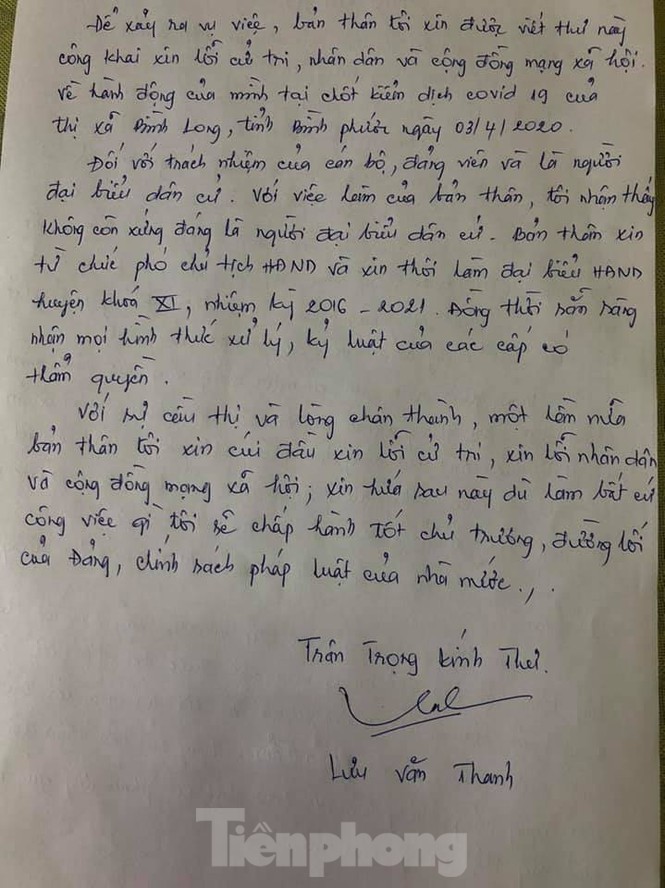 Để xảy ra vụ việc, bản thân tôi xin được viết thư này
công khai xin lỗi cử tri, nhân dân và cộng đồng mạng xã hội.
về hành động của mình tại chốt kiểm dịch covid 19 của
thị xã Bình Long, tỉnh Bình phước ngày 03/4/2020.
Đối với trách nhiệm của cán bộ, đảng viên và là người
đại biểu dân cử. Với việc làm của bản thân, tôi nhận thấy
không còn xứng đáng là người đại biểu dân cử. Bản thân xin
từ chức phó chủ tịch HĐND và xin thôi làm đại biểu HĐND
huyện khoá XI, nhiệm kỳ 2016 - 2021. Đồng thời sẵn sàng
nhận mọi hình thức xử lý, kỷ luật của các cấp có
thẩm quyền.
Với sự cầu thị và lòng chân thành, một lần nữa
bản thân tôi xin cúi đầu xin lỗi cử tri, xin lỗi nhân dân
và cộng đồng mạng xã hội; xin hứa sau này dù làm bất cứ
công việc gì tôi sẽ chấp hành tốt chủ trương, đường lối
của Đảng, chính sách pháp luật của nhà nước.,.
Trân Trọng kính Thư.
Lưu Văn Thanh
Tiềnphong